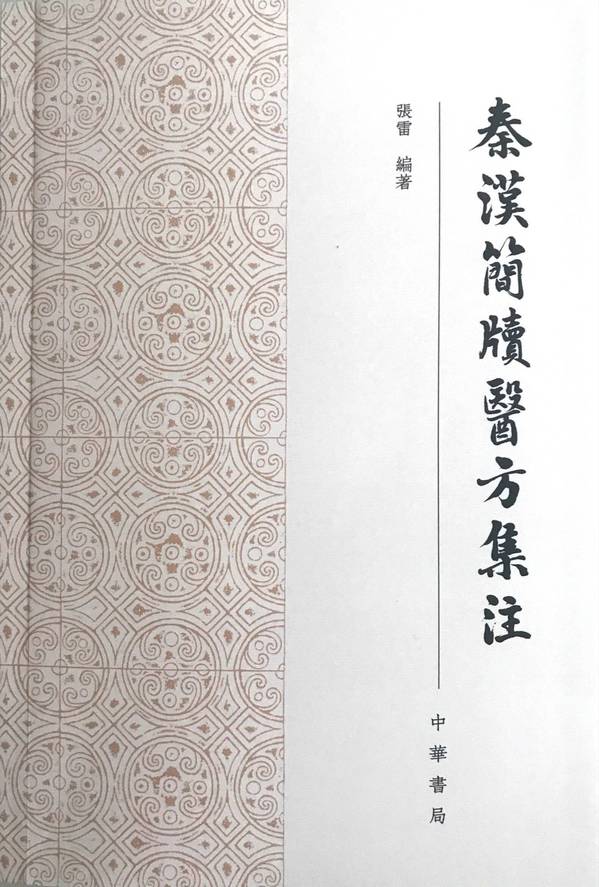 秦漢簡牘醫方集注
張雷 編著
中華書局